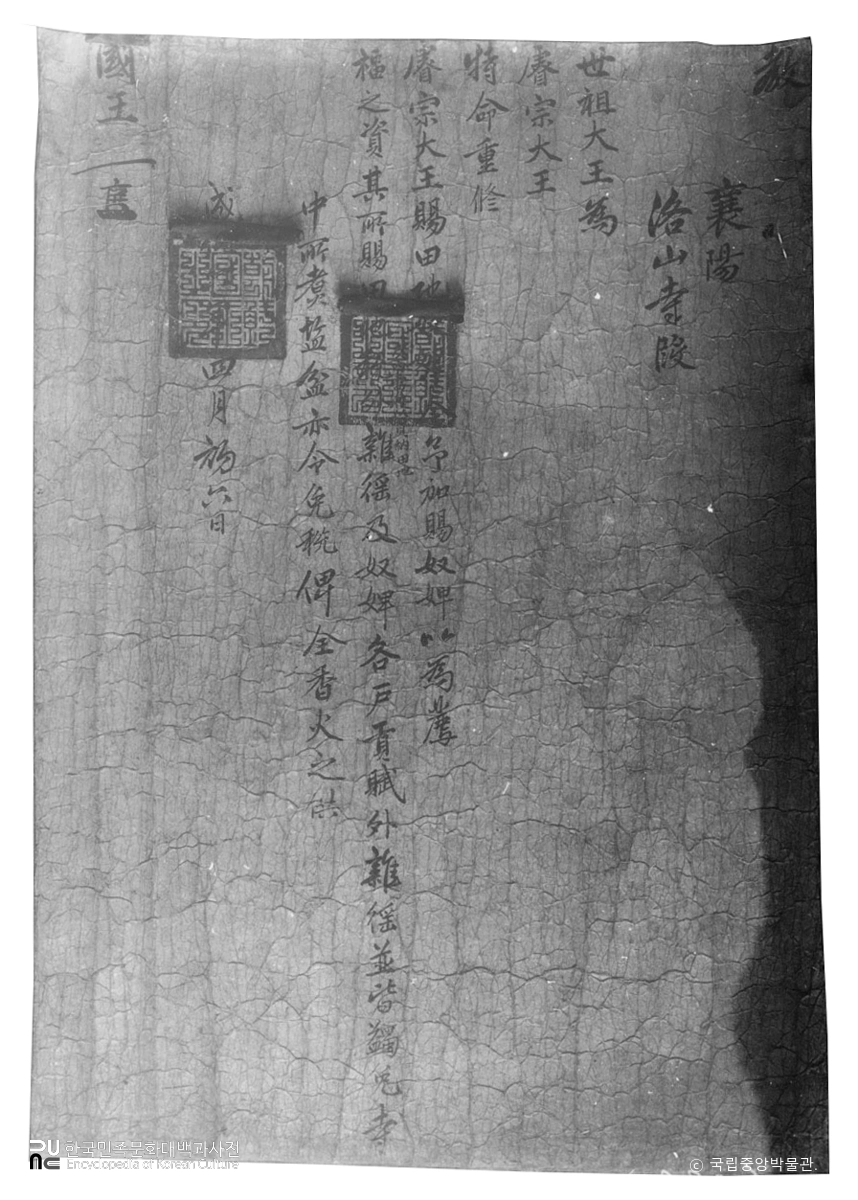 教
襄陽
洛山寺段
世祖大王為
睿宗大王
特命重修
睿宗大王賜田地 予加賜奴婢以為薦
福之資其所賜田 雜徭及奴婢各戶貢賦外雜徭並皆蠲 寺
中所煮盐盆亦令免稅俾全香火之供
成 四月初六日
國王
한국민족문화대백과사전
Encyclopedia of Korean Culture
© 국립중앙박물관.